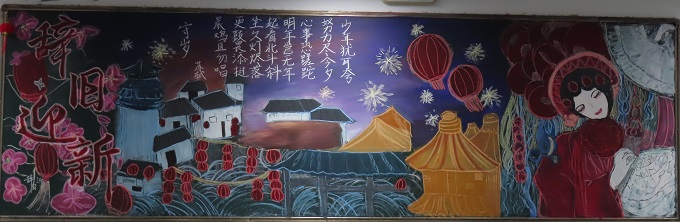 辞旧
迎新
守岁
苏轼
晨鸡且勿唱
更鼓畏添挝
坐久灯烬落
起看北斗斜
明年岂无年
心事恐蹉跎
努力尽今夕
少年犹可夸